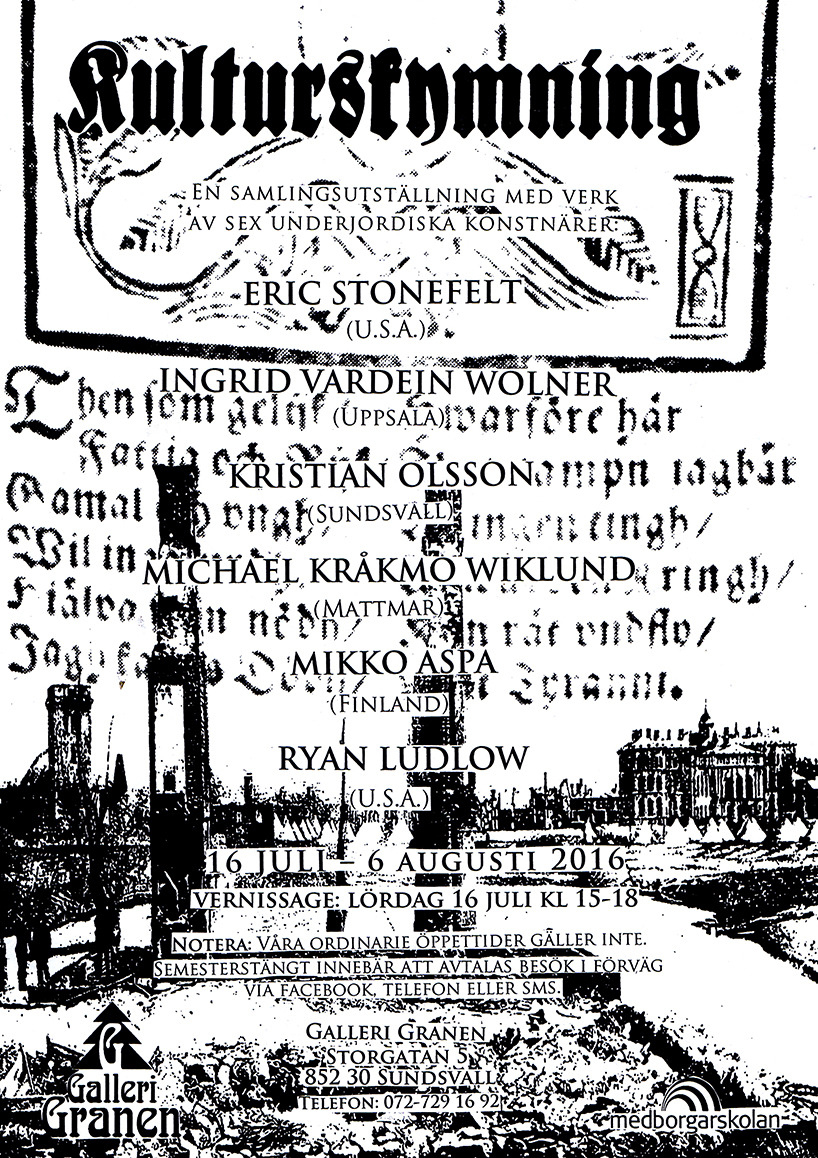 Kulturskymning
En samlingsutställning med verk
av sex underjordiska konstnärer:
Eric Stonefelt
(U.S.A.)
Ingrid Vardein Wolner
(Uppsala)
Kristian Olsson
(Sundsvall)
Michael Kråkmo Wiklund
(Mattmar)
Mikko Aspa
(Finland)
Ryan Ludlow
(U.S.A.)
Then som swarföre här
Fattig och
Gamal ungh ingen tingh/
Wil in ringh/
nödh/ råt vndfly/
Tyranni.
16 juli – 6 augusti 2016
Vernissage: Lördag 16 juli kl 15-18
Notera: Våra ordinarie öppettider gäller inte.
Semesterstängt innebär att avtalas besök i förväg
via facebook, telefon eller sms.
Galleri Granen
Storgatan 5
852 30 Sundsvall
Telefon: 072-729 16 92
G
Galleri
Granen
medborgarskolan